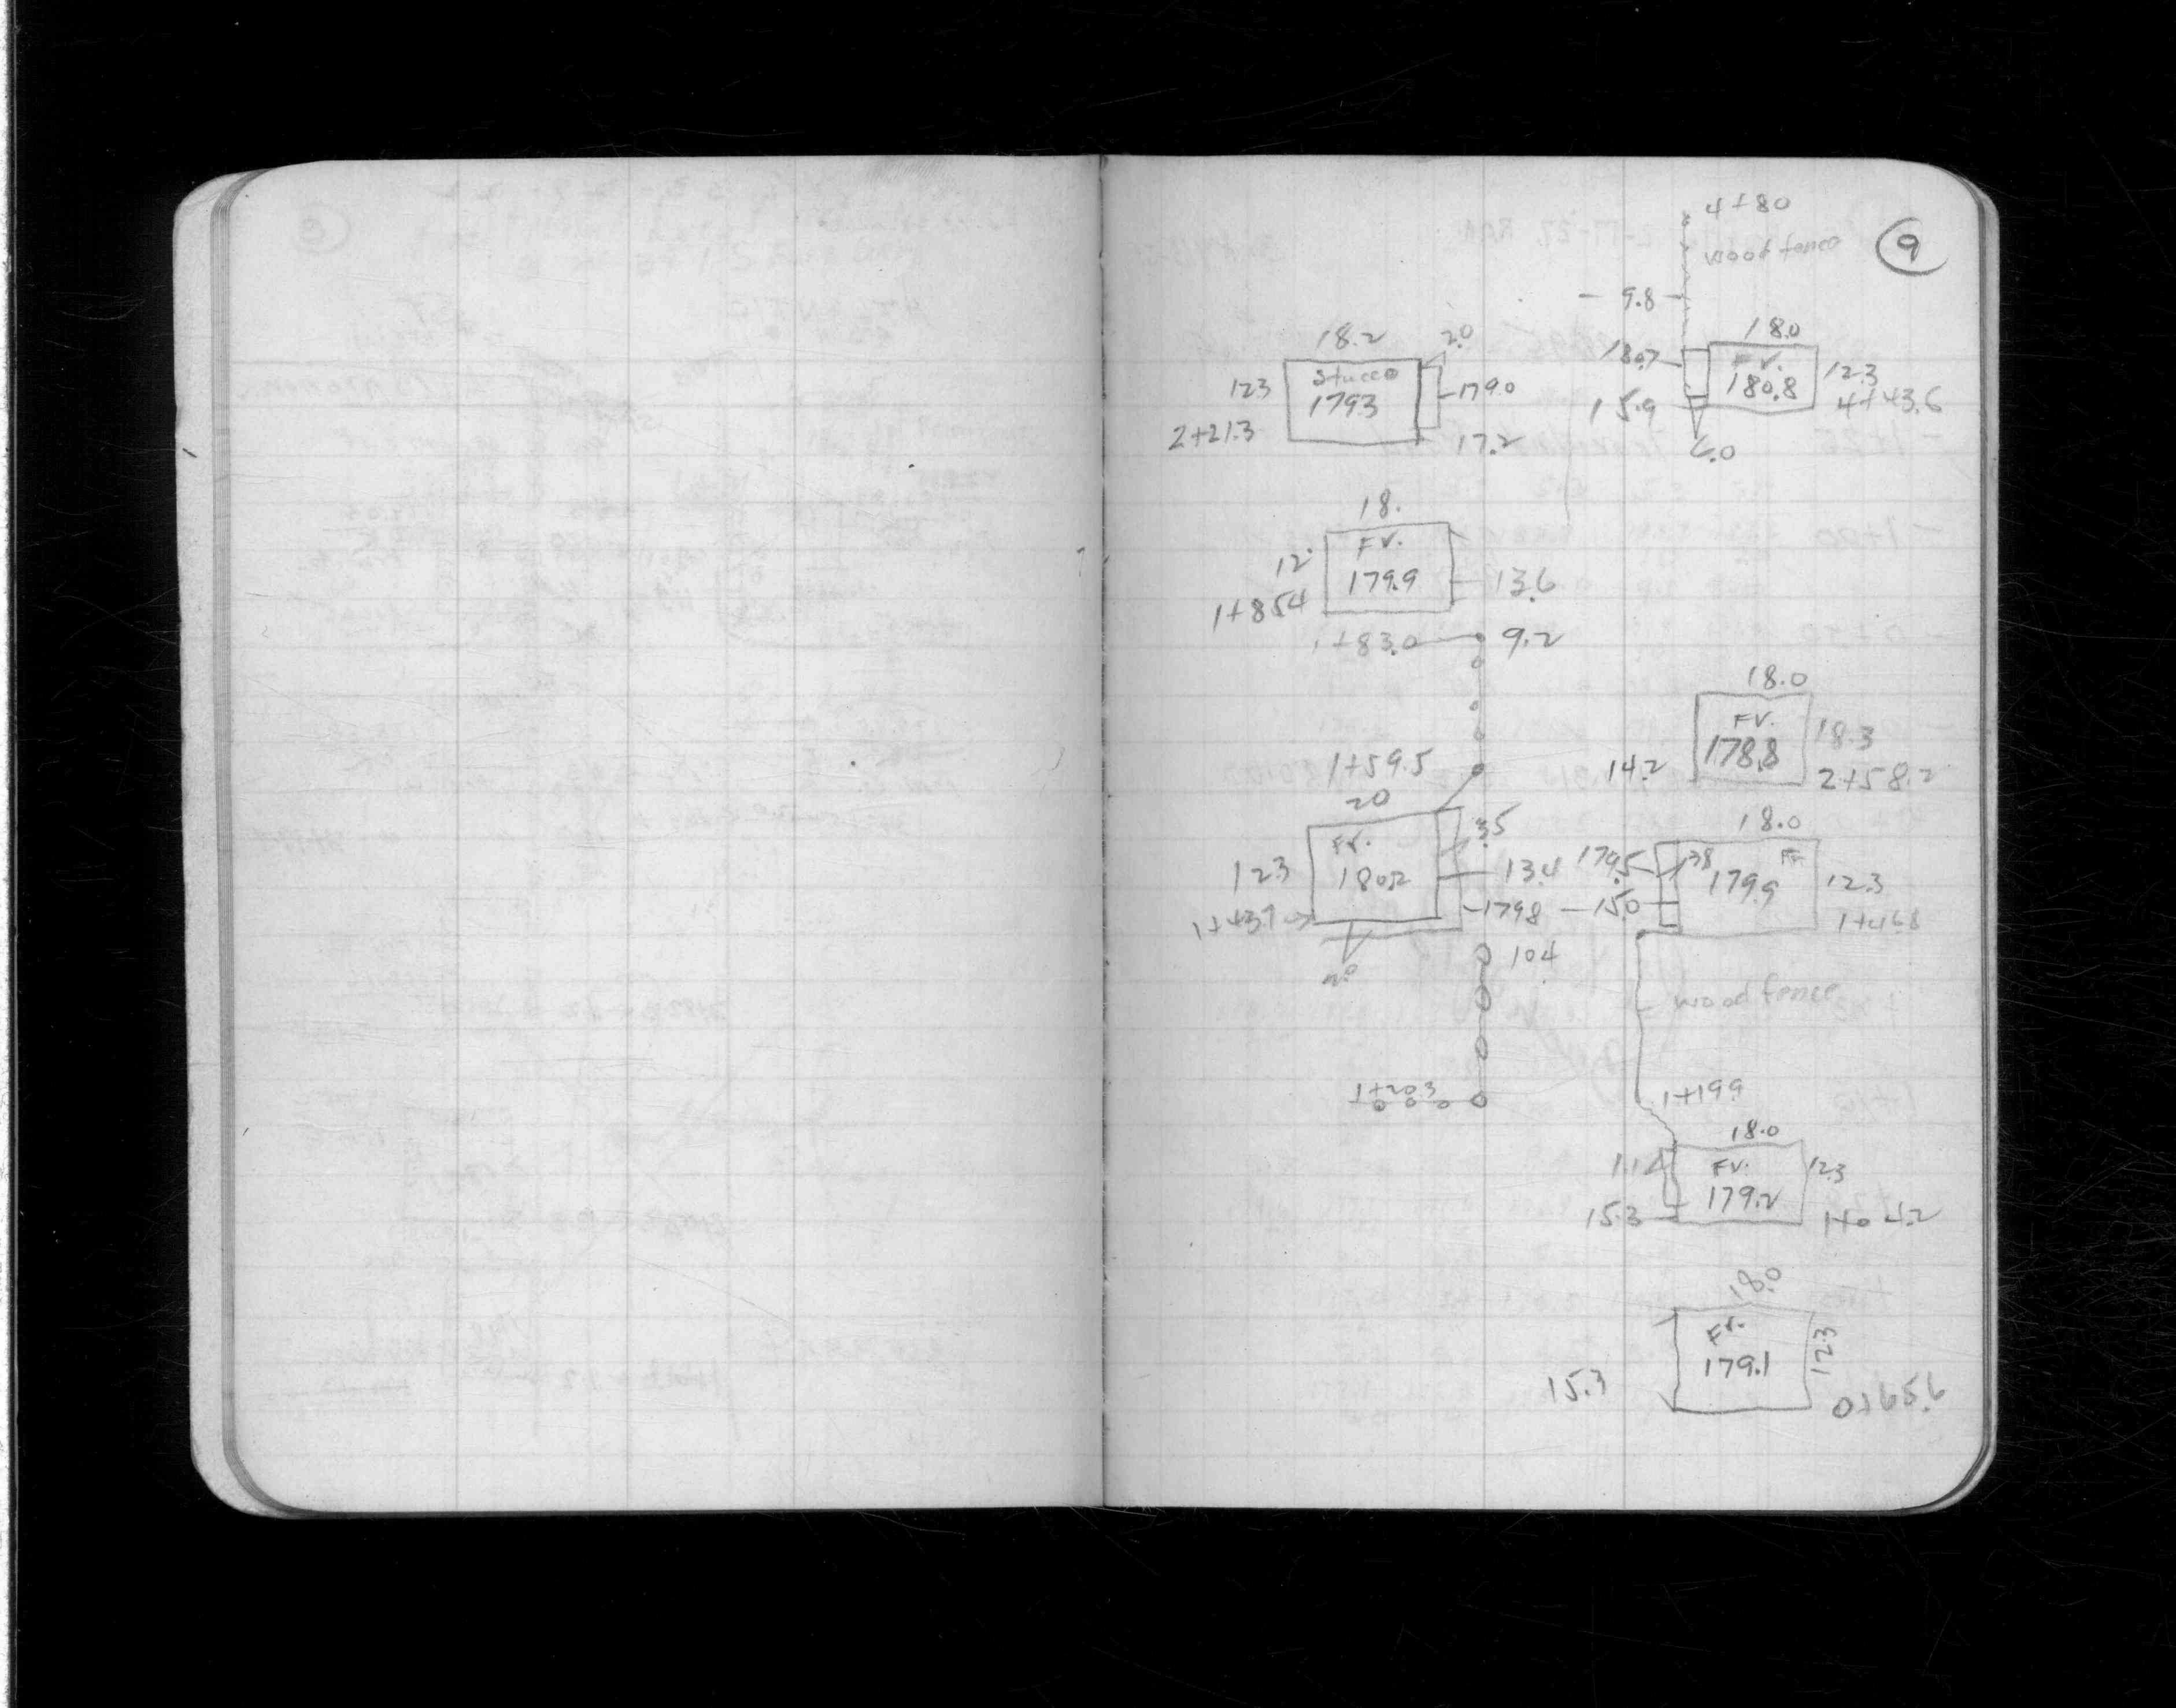 9
4+80
wood fence
9.8
18.2
2.0
18.0
180.7
Stucco
Fr.
12.3
179.3
179.0
180.8
12.3
15.9
4+43.6
2+21.3
17.2
6.0
18.
Fr.
12.
179.9
13.6
1+85.4
1+83.0
9.2
18.0
Fr.
178.8
18.3
1+59.5
14.2
2+58.2
20
18.0
3.5
Fr.
179.5
3.8
Fr
12.3
180.2
13.4
179.9
12.3
1+43.7
179.8
15.0
1+46.8
10.4
2.0
wood fence
1+20.3
1+19.9
18.0
Fr.
12.3
179.2
15.3
1+04.2
18.0
Fr.
179.1
12.3
15.3
0+65.6